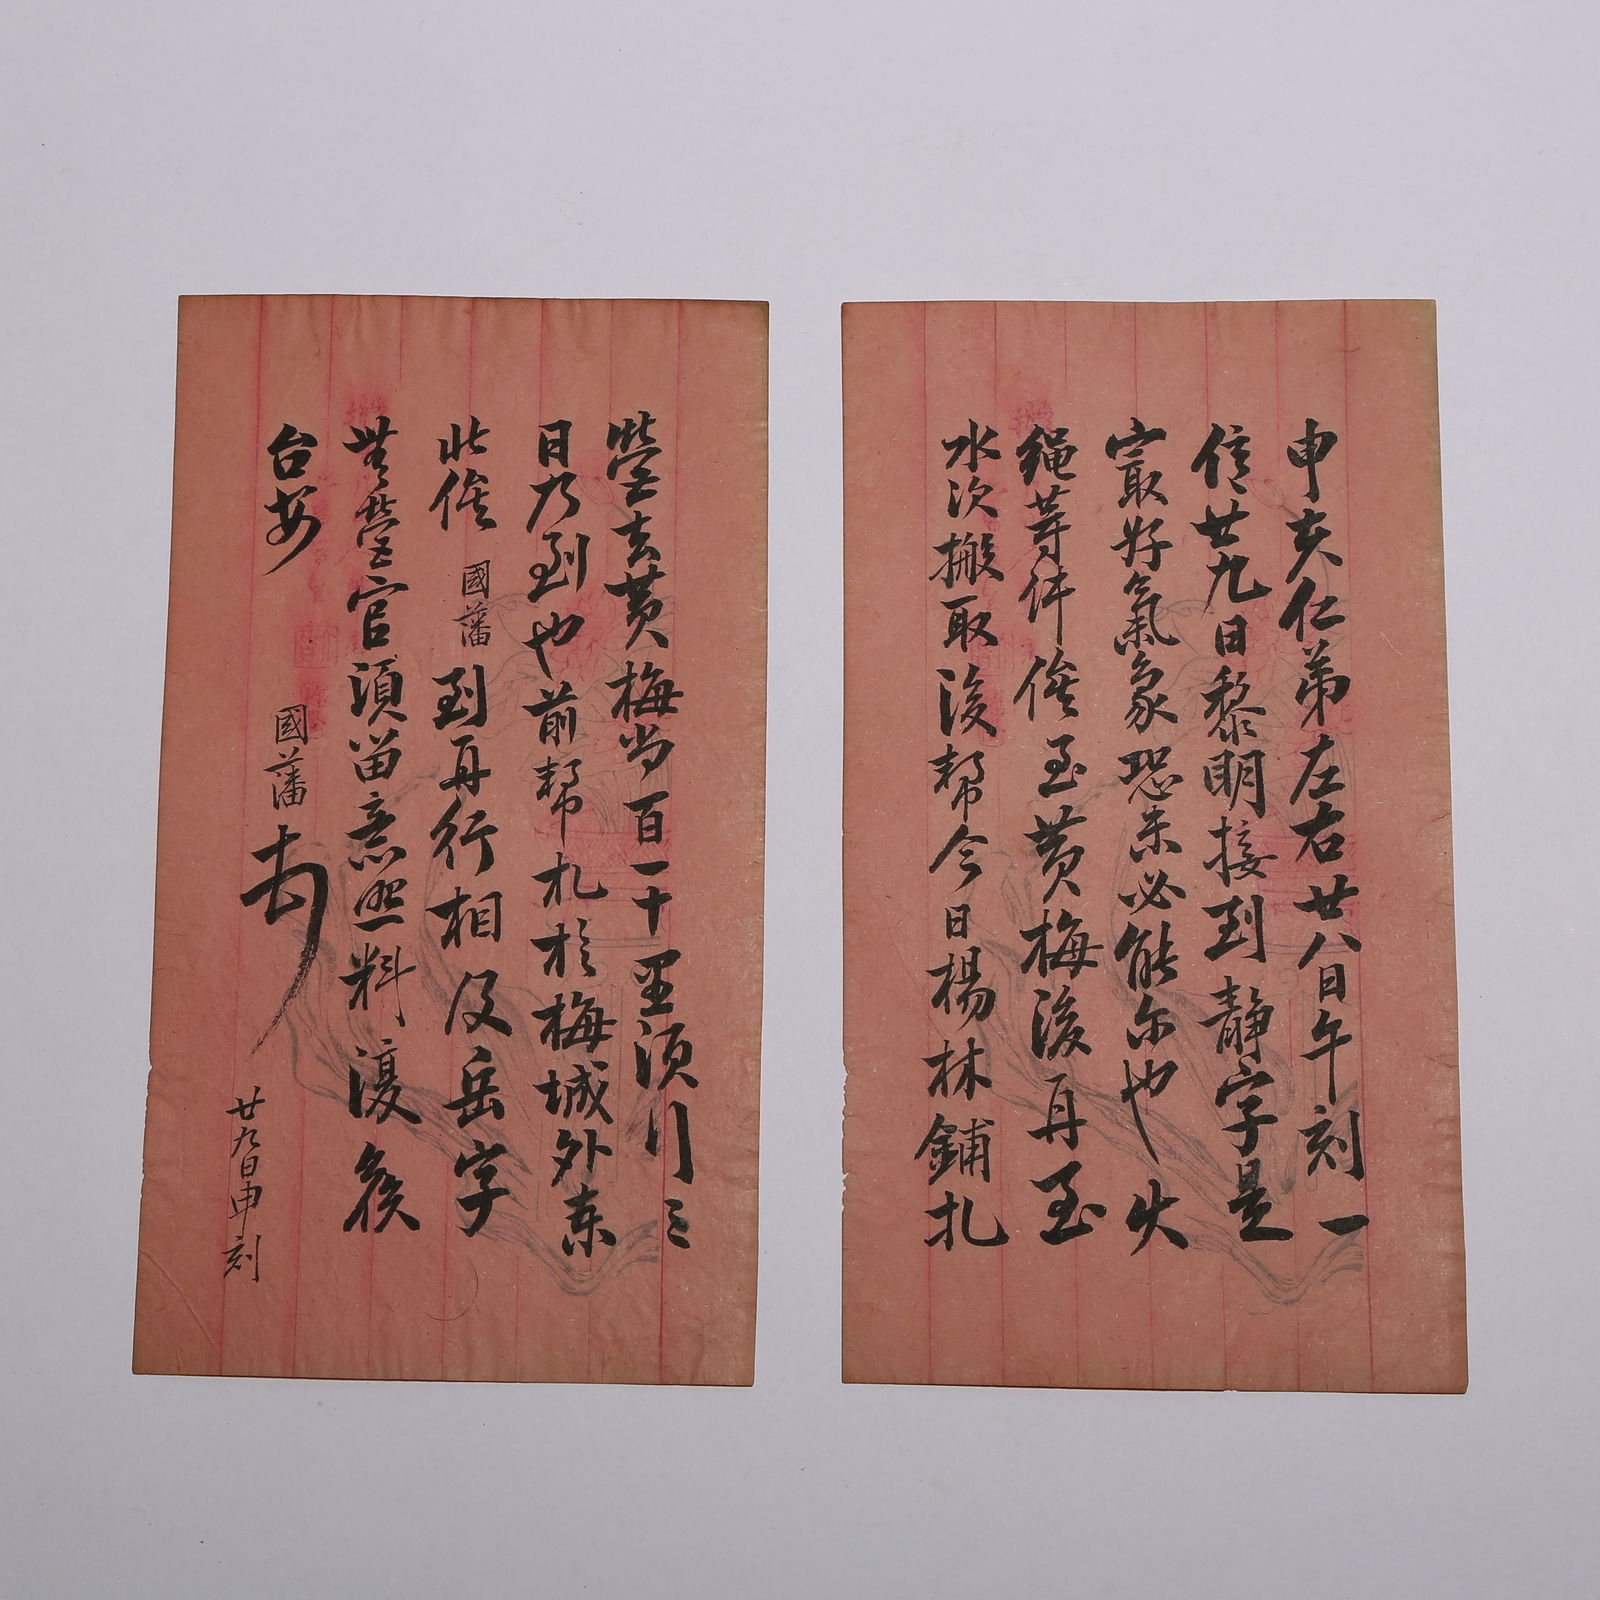 申夫仁弟左右廿八日午刻一
信廿九日黎明接到靜字是
寂好氣象恐未必能尔也火
繩等件俟至黄梅後再至
水次搬取後帮今日楊林鋪扎
營去黄梅尚百一十里須行三
日乃到也前帮札於梅城外東
北俟國藩到再行相度岳字
營官須留意照料復候
台安
國藩
廿九日申刻